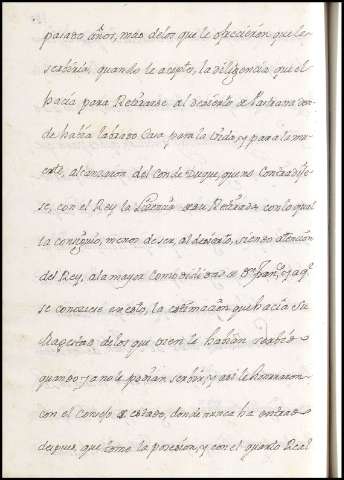 pasado años, mas de los que le ofrecieron que le
serbiria, quando le acepto, la diligencia que el
hacia para Retirarse al desierto de Pastrana don
de habia labrado Casa para la vida, y para la mu
erte, alcansaron del Conde Duque, que no Contradije
se, con el Rey la Licencia de su Retirada con lo qual
la consiguio, menos de ser, al desierto, siendo atencion
del Rey, a la mayor Comodidad de Dn Juan, y aqi
se conosciese en esto, la estimacion que hacia Su
Magestad de los que bien le habian serbido
quando ya no le podian serbir, y asi le honraron
con el Consejo de estado, donde nunca ha entrado
despues, que tomo la posesion, y con el quarto Real